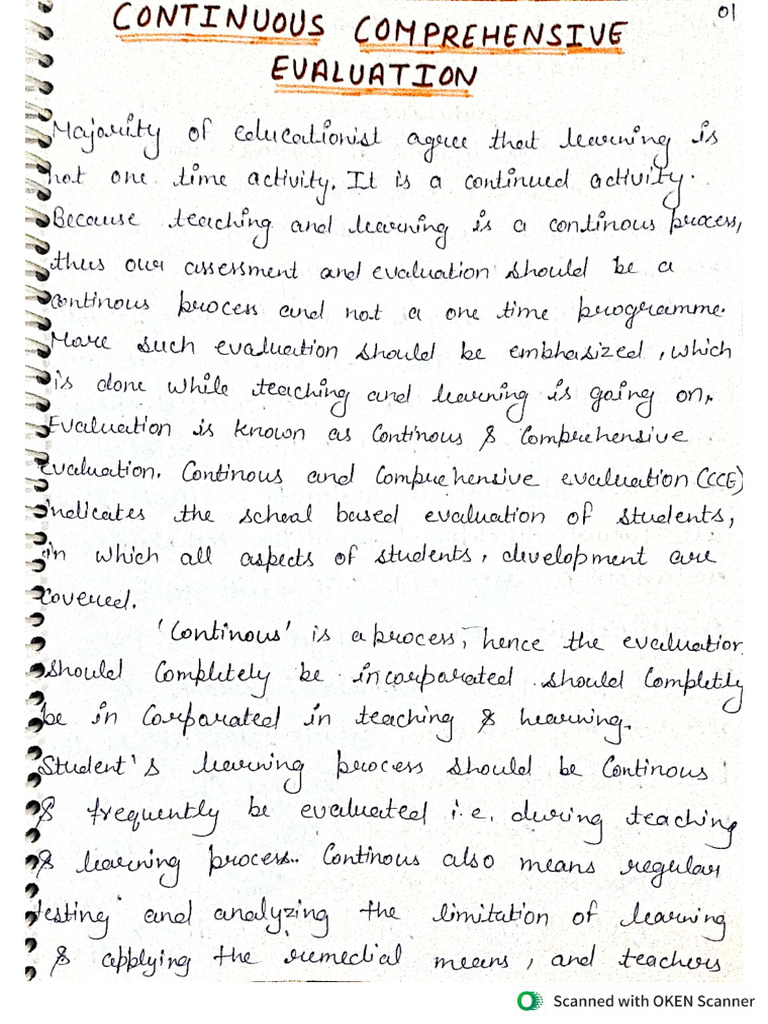 01
CONTINUOUS COMPREHENSIVE
EVALUATION
Majority of educationist agree that learning is
not one time activity. It is a continued activity.
Because teaching and learning is a continous process,
thus our assessment and evaluation should be a
continous process and not a one time programme.
More such evaluation should be emphasized, which
is done while teaching and learning is going on.
Evaluation is known as Continous & Comprehensive
evaluation. Continous and Comprehensive evaluation (CCE)
indicates the school based evaluation of students,
in which all aspects of students, development are
covered.
'Continous' is a process, hence the evaluation
should completely be incorporated should completly
be in corporated in teaching & learning.
Student's learning process should be Continous
& frequently be evaluated i.e. during teaching
& learning process.. Continous also means regular
testing and analyzing the limitation of learning
& applying the remedial means, and teachers
Scanned with OKEN Scanner